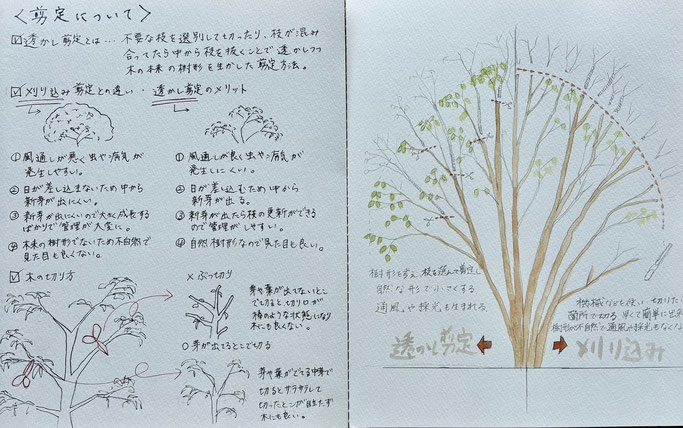 〈剪定について〉
☑透かし剪定とは… 不要な枝を選別して切ったり、枝が混み
合ってたら中から枝を抜くことで透かしつつ
木の本来の樹形を生かした剪定方法。
☑刈り込み剪定との違い・透かし剪定のメリット
①風通しが悪く虫や病気が
発生しやすい。
②日が差し込まないため中から
新芽が出にくい。
③新芽が出にくいので大きく成長する
ばかりで管理が大変に。
④本来の樹形でないため不自然で
見た目も良くない。
①風通しが良く虫や病気が
発生しにくい。
②日が差し込むため中から
新芽が出る。
③新芽が出たら枝の更新ができる
ので管理がしやすい。
④自然樹形なので見た目も良い。
☑木の切り方
×ぶつ切り
芽や葉が出てないとこ
で切ると切り口が
棒のような状態になり
木にも良くない。
〇芽が出てるとこで切る
芽や葉がでてる中等で
切るとサラサラして
切ったとこが目立たず
木にも良い。
樹形を考え枝を選んで剪定し
自然な形で小さくする
通風や採光も生まれる
透かし剪定
機械なども使い切りたい
箇所で切る 早くて簡単に出来
樹形が不自然で通風や採光もなくな
刈り込み